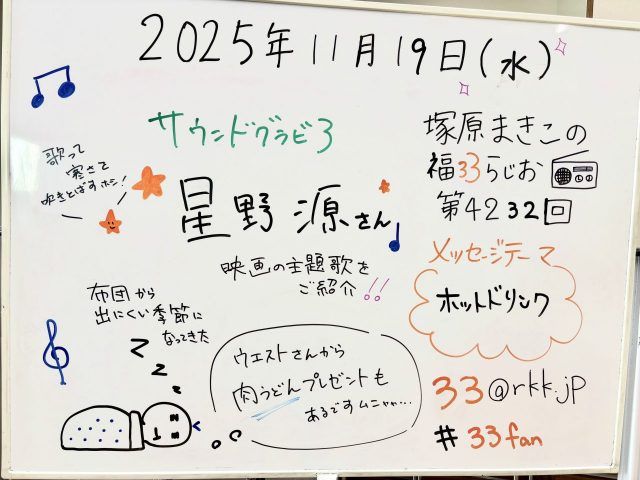 2025年11月19日(水)
サウンドグラビ3
歌って
寒さて
吹きとばすホシ!
星野 源さん
映画の主題歌を
ご紹介!!
塚原まきこの
福33らじお
第4232回
メッセージテーマ
ホットドリンク
33@rkk.jp
#33fan
布団から
出にくい季節に
なってきた
z
z
z
ウエストさんから
肉うどんプレゼントも
あるですムニャャ...